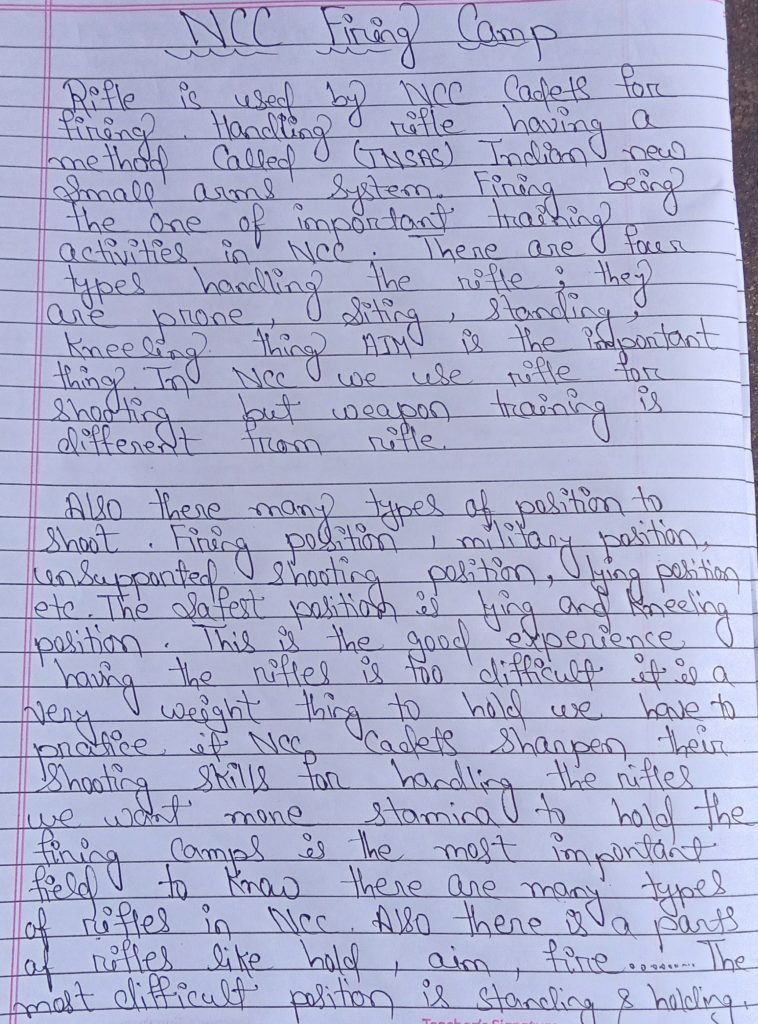 NCC Firing Camp
Rifle is used by NCC Cadets for
firing. Handling rifle having a
method Called (INSAS) Indian new
Small arms System. Firing being
the one of important training
activities in NCC. There are four
types handling the rifle ; they
are prone, Siting, standing,
Kneeling. thing AIM is the important
thing. In NCC we use rifle for
shooting but weapon training is
different from rifle.
Also there many types of position to
shoot. Firing position, military position,
unsupported shooting position, lying position
etc. The safest position is lying and Kneeling
position. This is the good experience
having the rifles is too difficult it is a
very weight thing to hold we have to
practice it NCC Cadets sharpen their
shooting skills for handling the rifles
we want more stamina to hold the
firing Camps is the most important
field to know there are many types
of rifles in NCC. Also there is a parts
of rifles like hold, aim, fire......... The
most difficult position is standing & holding.